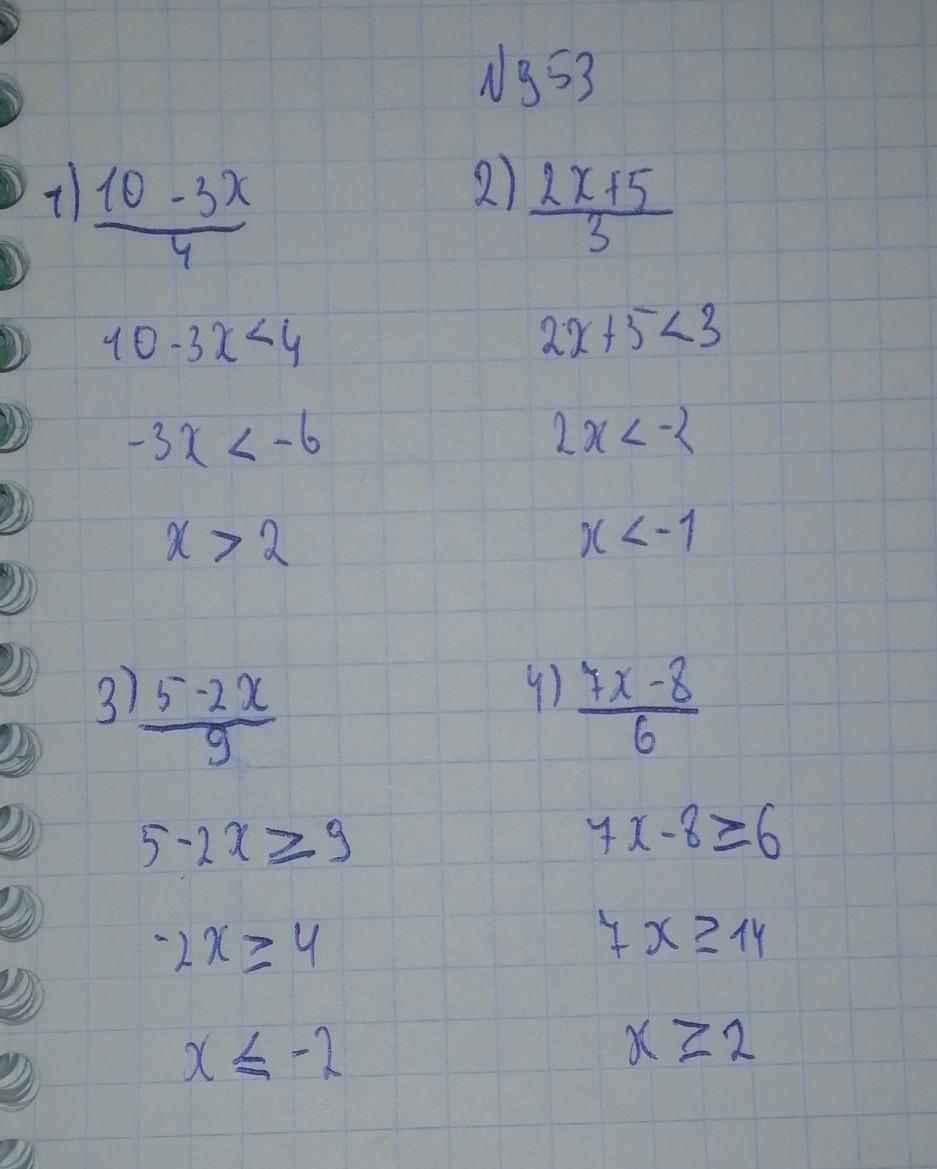 №953
1) 10 - 3x / 4
10 - 3x < 4
-3x < -6
x > 2
2) 2x + 5 / 3
2x + 5 < 3
2x < -2
x < -1
3) 5 - 2x / 9
5 - 2x ≥ 9
-2x ≥ 4
x ≤ -2
4) 7x - 8 / 6
7x - 8 ≥ 6
7x ≥ 14
x ≥ 2